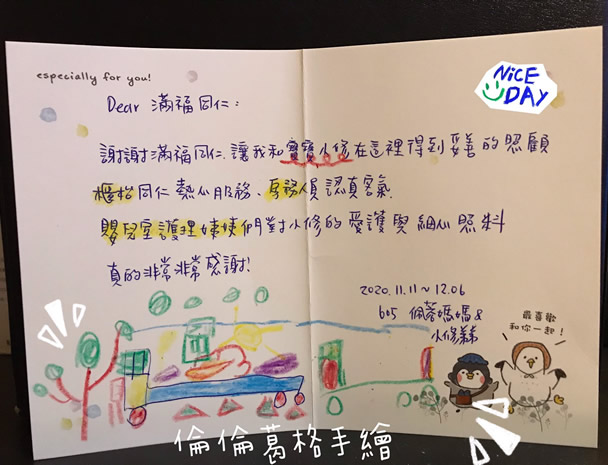 especially for you!
NiCE
DAY
Dear 滿福同仁:
謝謝滿福同仁,讓我和寶寶小修在這裡得到妥善的照顧
櫃枱同仁熱心服務、房務人員認真客氣
嬰兒室護理姨姨們對小修的愛護與細心照料
真的非常非常感謝!
2020.11.11~12.06
605 佩蓉媽媽&
小修
最喜歡
和你一起!
倫倫葛格手繪